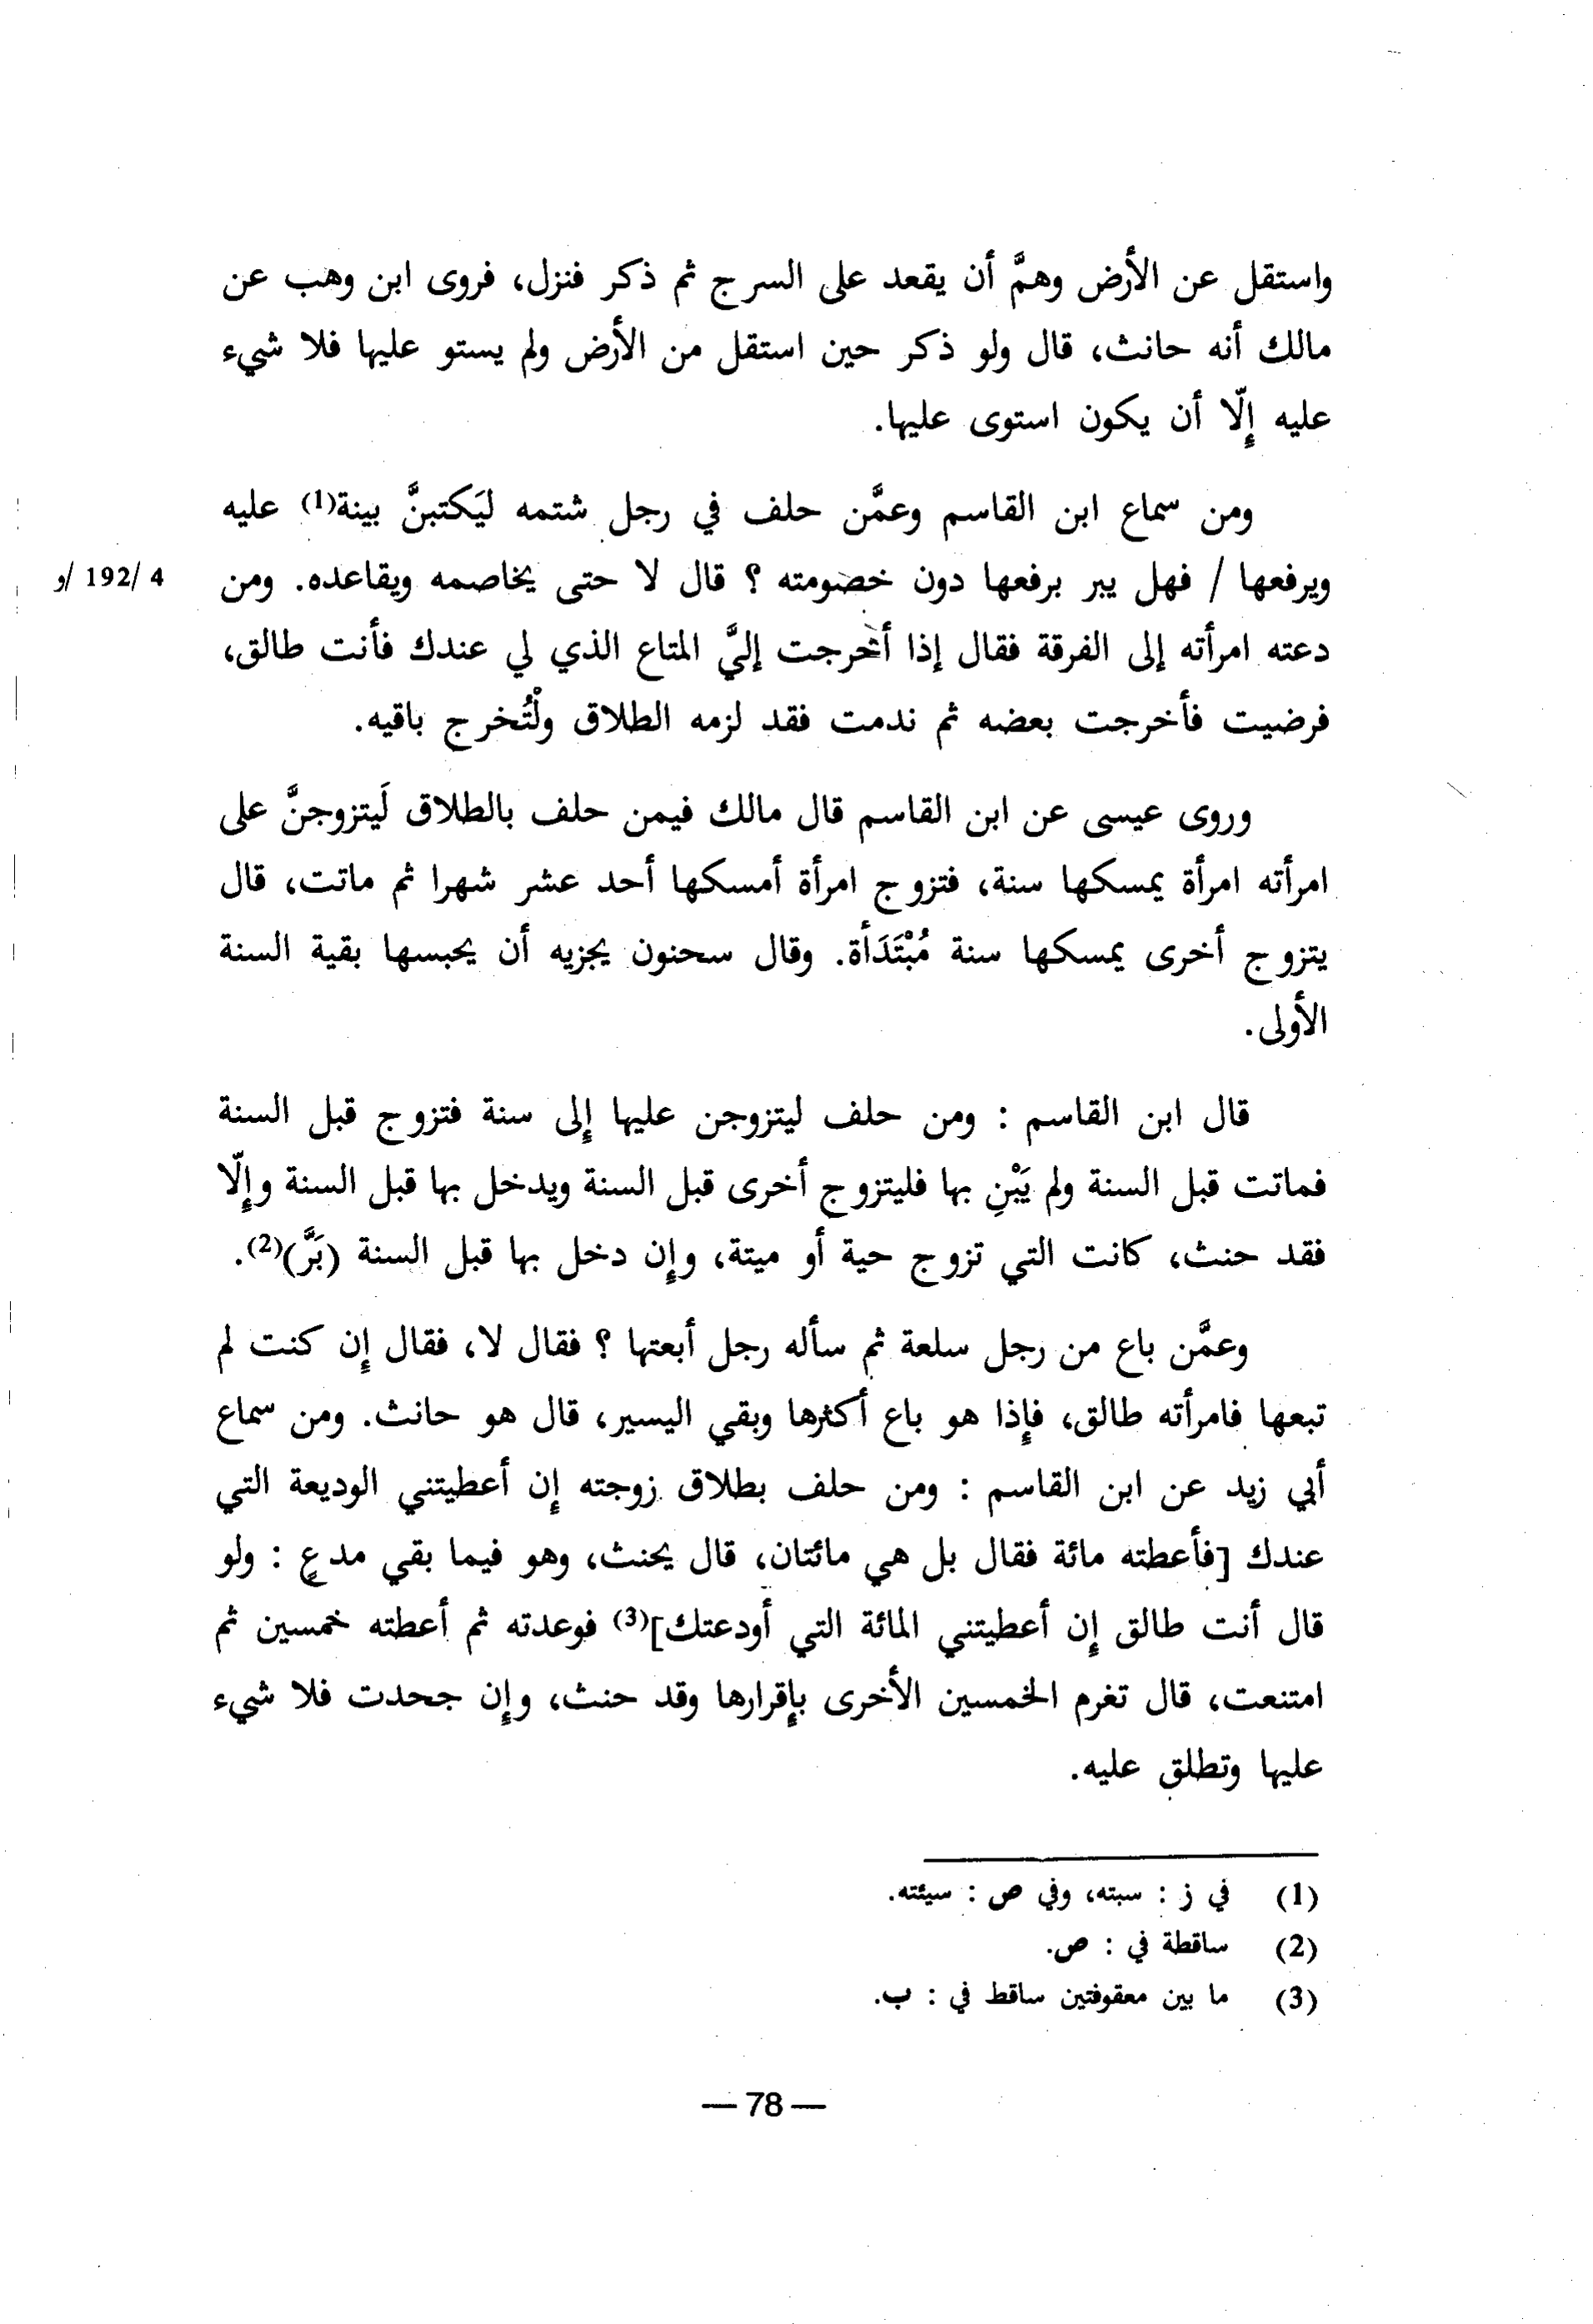 واستقل عن الأرض وهمَّ أن يقعد على السرج ثم ذكر فنزل، فروى ابن وهب عن
مالك أنه حانث، قال ولو ذكر حين استقل من الأرض ولم يستو عليها فلا شيء
عليه إلّا أن يكون استوى عليها.
ومن سماع ابن القاسم وعمَّن حلف في رجل شتمه ليَكتبنَّ بينة(1) عليه
ويرفعها / فهل يبر برفعها دون خصومته ؟ قال لا حتى يخاصمه ويقاعده. ومن
4 /192 /و
دعته امرأته إلى الفرقة فقال إذا أخرجت إليَّ المتاع الذي لي عندك فأنت طالق،
فرضيت فأخرجت بعضه ثم ندمت فقد لزمه الطلاق ولْتُخرج باقيه.
وروى عيسى عن ابن القاسم قال مالك فيمن حلف بالطلاق لَيتزوجنَّ على
امرأته امرأة يمسكها سنة، فتزوج امرأة أمسكها أحد عشر شهرا ثم ماتت، قال
يتزوج أخرى يمسكها سنة مُبْتَدَأة. وقال سحنون يجزيه أن يحبسها بقية السنة
الأولى.
قال ابن القاسم : ومن حلف ليتزوجن عليها إلى سنة فتزوج قبل السنة
فماتت قبل السنة ولم يَبْنِ بها فليتزوج أخرى قبل السنة ويدخل بها قبل السنة وإلّا
فقد حنث، كانت التي تزوج حية أو ميتة، وإن دخل بها قبل السنة (بَرَّ)(2).
وعمَّن باع من رجل سلعة ثم سأله رجل أبعتها ؟ فقال لا، فقال إن كنت لم
تبعها فامرأته طالق، فإذا هو باع أكثرها وبقي اليسير، قال هو حانث. ومن سماع
أبي زيد عن ابن القاسم : ومن حلف بطلاق زوجته إن أعطيتني الوديعة التي
عندك [فأعطته مائة فقال بل هي مائتان، قال يحنث، وهو فيما بقي مدعٍ : ولو
قال أنت طالق إن أعطيتني المائة التي أودعتك](3) فوعدته ثم أعطته خمسين ثم
امتنعت، قال تغرم الخمسين الأخرى بإقرارها وقد حنث، وإن جحدت فلا شيء
عليها وتطلق عليه.
(1) في ز : سبته، وفي ص : سيئته.
(2) ساقطة في : ص.
(3) ما بين معقوفتين ساقط في : ب.
— 78 —